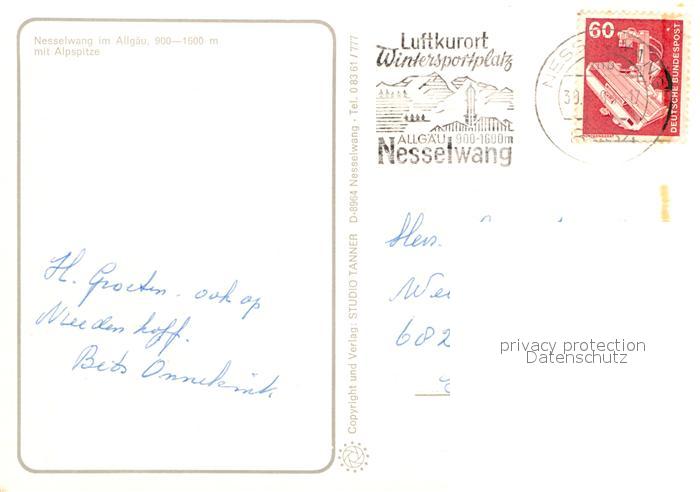 Nesselwang im Allgäu, 900—1600 m
mit Alpspitze
H. Groeten. ook op
Bets
Copyright und Verlag: STUDIO TANNER D-8964 Nesselwang · Tel. 0 83 61 / 777
Luftkurort
Wintersportplatz
ALLGÄU 900-1600m
Nesselwang
60
DEUTSCHE BUNDESPOST
682
privacy protection
Datenschutz